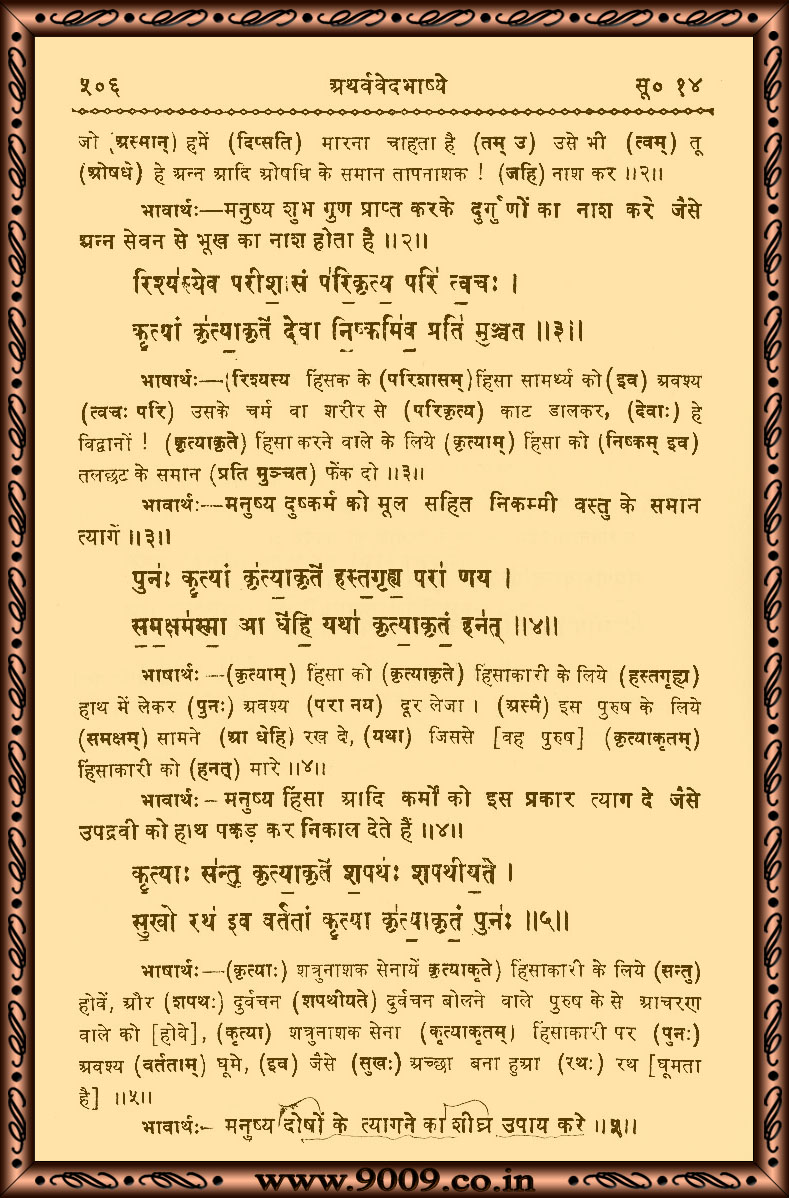 ५०६ अथर्ववेदभाष्ये सू० १४
जो (अस्मान्) हमें (दिप्सति) मारना चाहता है (तम् उ) उसे भी (त्वम्) तू
(ओषधे) हे अन्न आदि ओषधि के समान तापनाशक ! (जहि) नाश कर ॥२॥
भावार्थः—मनुष्य शुभ गुण प्राप्त करके दुर्गुणों का नाश करे जैसे
अन्न सेवन से भूख का नाश होता है ॥२॥
रिश्य॑स्येव परीशा॒सं प॑रि॒कृत्य॒ परि॑ त्व॒चः ।
कृ॒त्यां कृ॑त्या॒कृते॑ देवा नि॒ष्कमि॑व॒ प्रति॑ मुञ्चत ॥३॥
भाषार्थः—(रिश्यस्य हिंसक के (परिशासम्) हिंसा सामर्थ्य को (इव) अवश्य
(त्वचः परि) उसके चर्म वा शरीर से (परिकृत्य) काट डालकर, (देवाः) हे
विद्वानों ! (कृत्याकृते) हिंसा करने वाले के लिये (कृत्याम्) हिंसा को (निष्कम् इव)
तलछट के समान (प्रति मुञ्चत) फेंक दो ॥३॥
भावार्थः—मनुष्य दुष्कर्म को मूल सहित निकम्मी वस्तु के समान
त्यागें ॥३॥
पुन॑ः कृ॒त्यां कृ॑त्या॒कृते॑ हस्त॒गृह्य॒ परा॑ णय ।
स॒म॒क्षम॑स्मा॒ आ धे॑हि॒ यथा॑ कृत्या॒कृतं॒ हन॑त् ॥४॥
भाषार्थः—(कृत्याम्) हिंसा को (कृत्याकृते) हिंसाकारी के लिये (हस्तगृह्य)
हाथ में लेकर (पुनः) अवश्य (परा नय) दूर लेजा । (अस्मै) इस पुरुष के लिये
(समक्षम्) सामने (आ धेहि) रख दे, (यथा) जिससे [वह पुरुष] (कृत्याकृतम्)
हिंसाकारी को (हनत्) मारे ॥४॥
भावार्थः—मनुष्य हिंसा आदि कर्मों को इस प्रकार त्याग दे जैसे
उपद्रवी को हाथ पकड़ कर निकाल देते हैं ॥४॥
कृ॒त्याः स॑न्तु कृत्या॒कृते॑ श॒पथ॑ः शपथीय॒ते ।
सु॒खो रथ॑ इव वर्ततां कृ॒त्या कृ॑त्या॒कृतं॒ पुन॑ः ॥५॥
भाषार्थः—(कृत्याः) शत्रुनाशक सेनायें कृत्याकृते) हिंसाकारी के लिये (सन्तु)
होवें, और (शपथः) दुर्वचन (शपथीयते) दुर्वचन बोलने वाले पुरुष के से आचरण
वाले को [होवे], (कृत्या) शत्रुनाशक सेना (कृत्याकृतम्) हिंसाकारी पर (पुनः)
अवश्य (वर्तताम्) घूमे, (इव) जैसे (सुखः) अच्छा बना हुआ (रथः) रथ [घूमता
है] ॥५॥
भावार्थः—मनुष्य दोषों के त्यागने का शीघ्र उपाय करे ॥५॥
www.9009.co.in